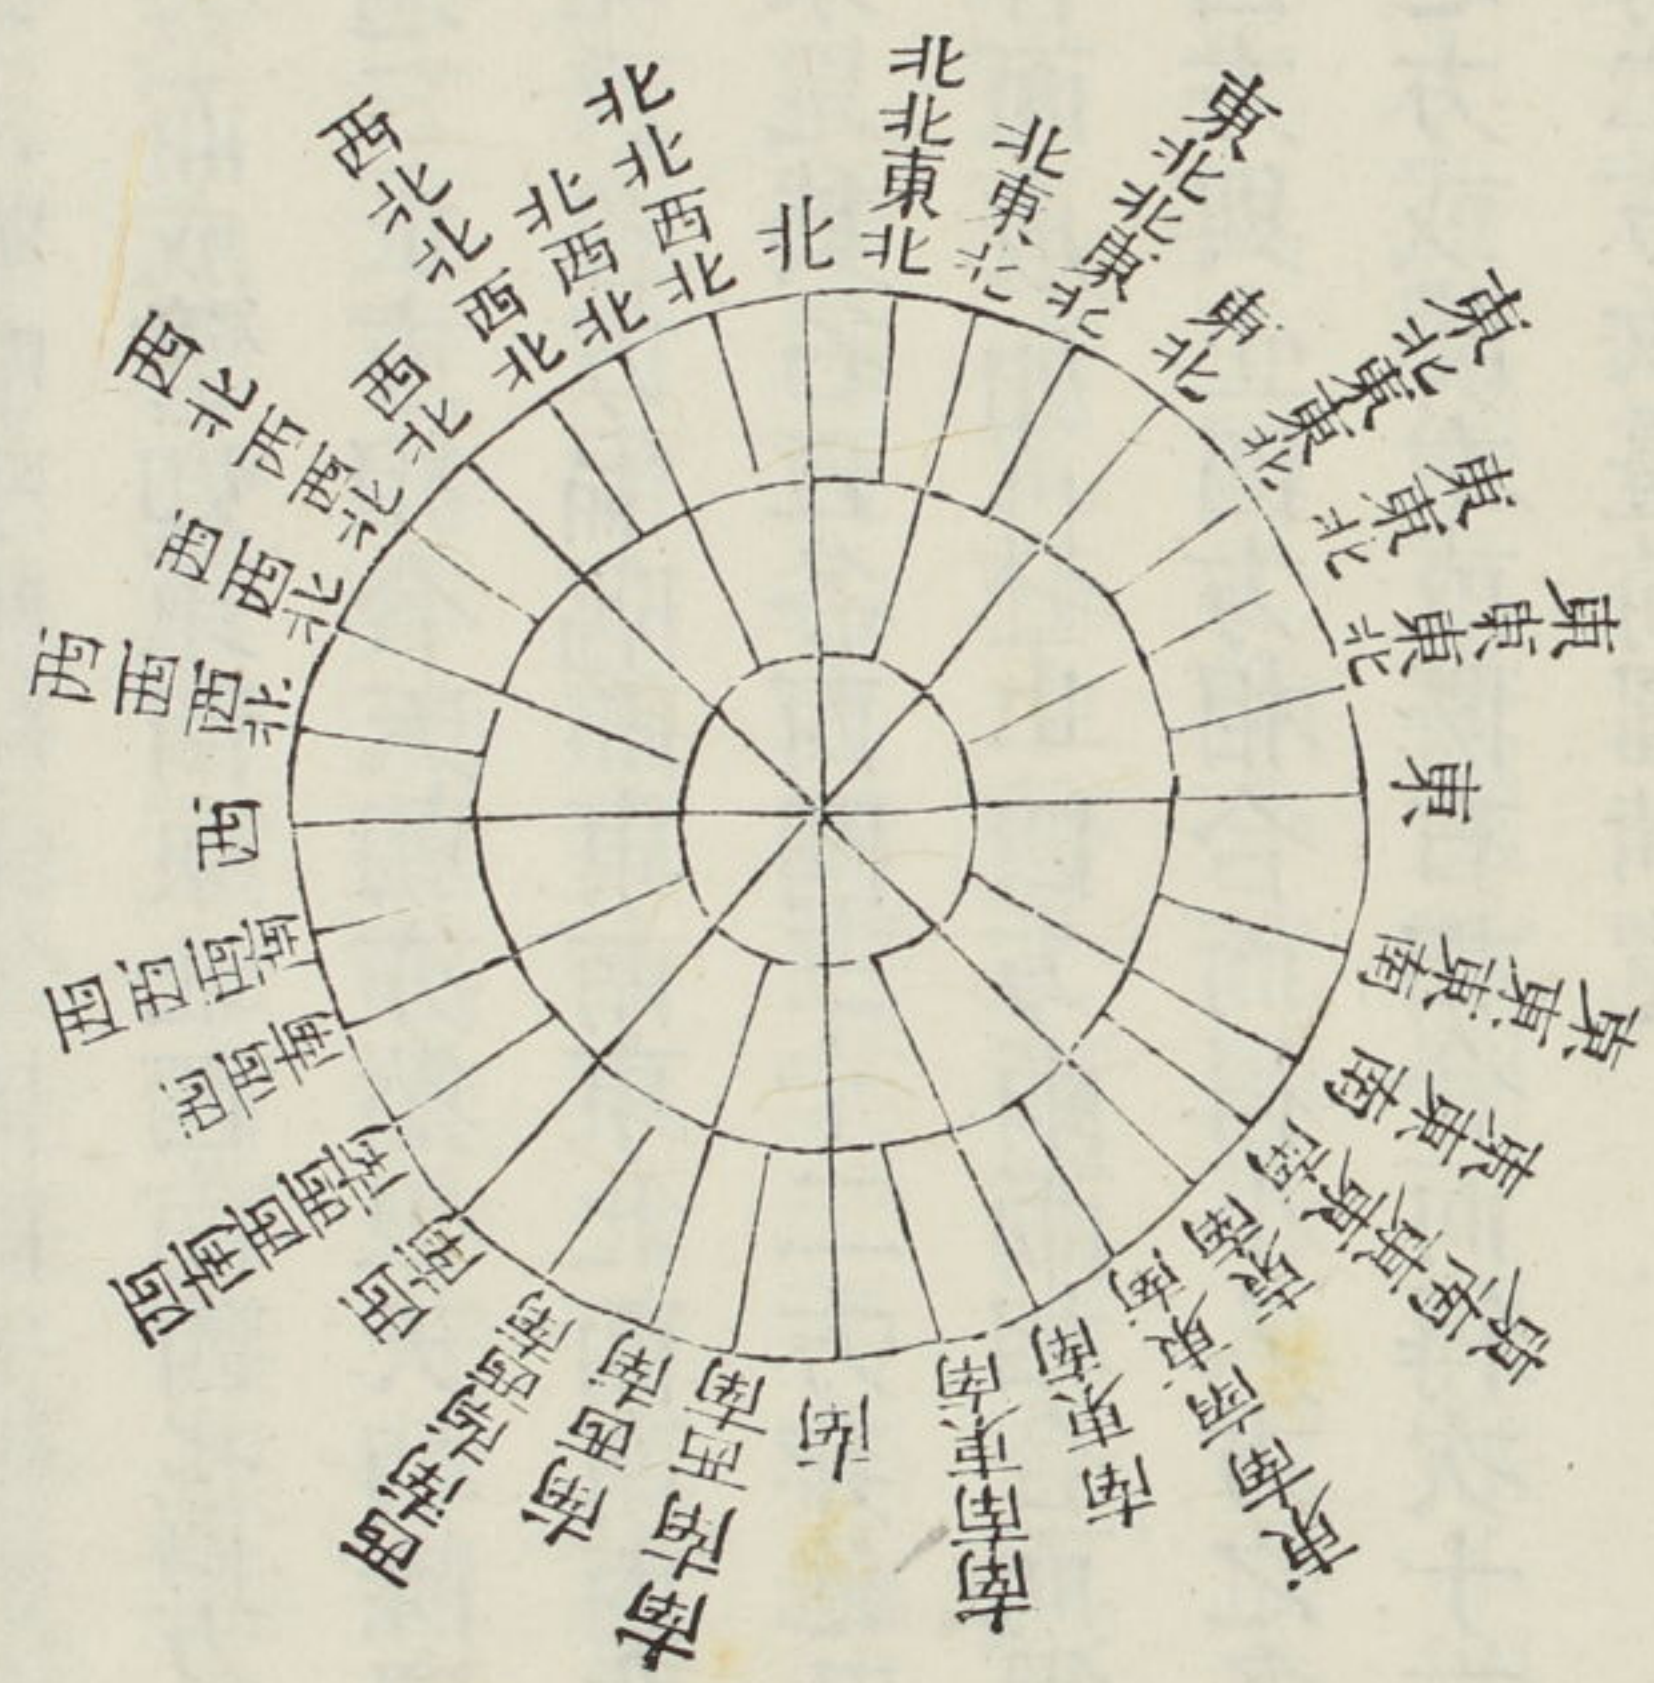 北
北北東北
北東北
東北北東北
東北
東北東東北
東東北
東東東北
東
東東東南
東東南
東南東東南
東南
東南南東南
南東南
南南東南
南
南南西南
南西南
西南南西南
西南
西南西西南
西西南
西西西南
西
西西西北
西西北
西北西西北
西北
西北北西北
北西北
北北西北